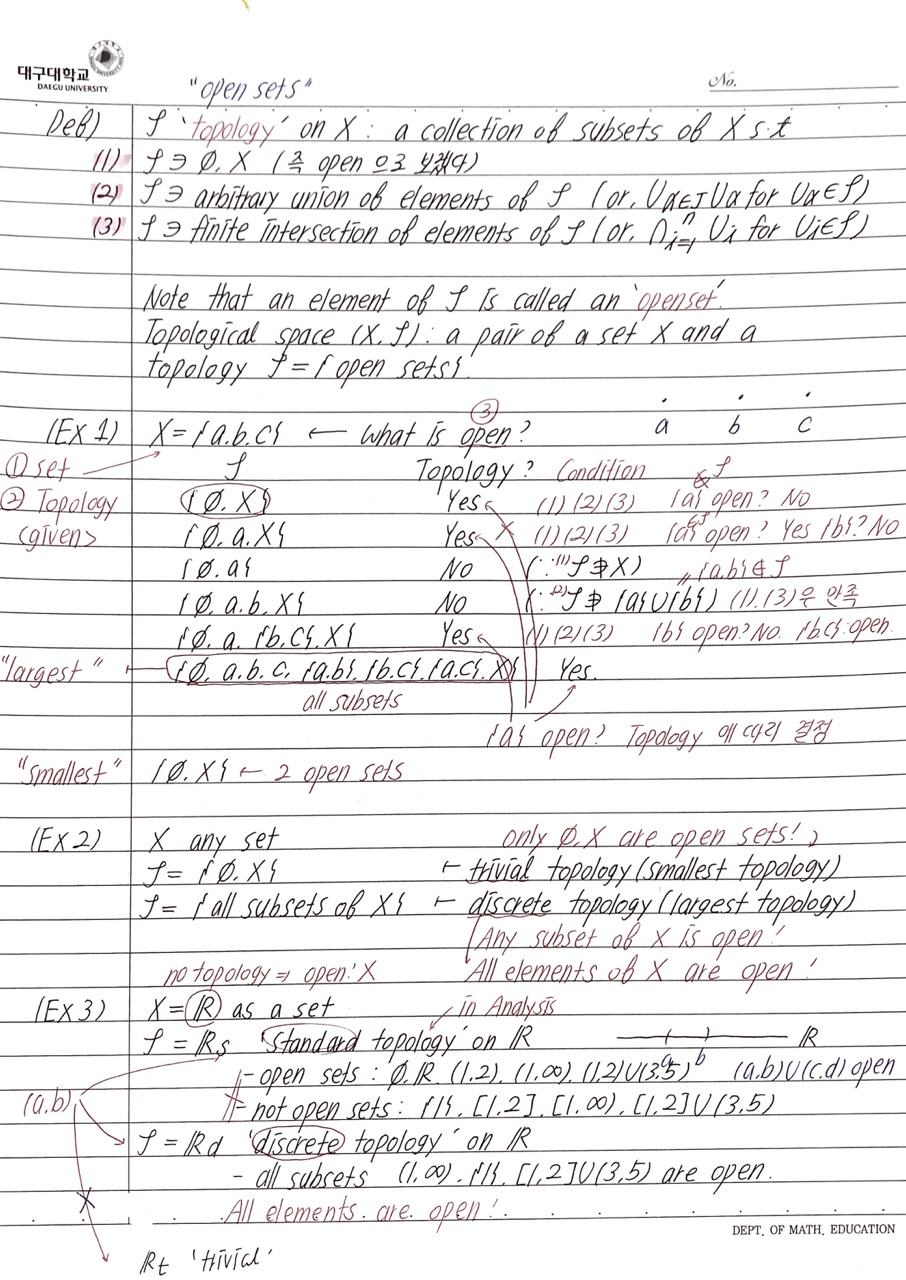 대구대학교
DAEGU UNIVERSITY
No.
"open sets"
Def) 𝒯 'topology' on X : a collection of subsets of X s.t
(1) 𝒯 ∋ ∅. X (즉 open 으로 보겠다)
(2) 𝒯 ∋ arbitrary union of elements of 𝒯 (or, ∪α∈J Uα for Uα∈𝒯)
(3) 𝒯 ∋ finite intersection of elements of 𝒯 (or, ∩ⁿᵢ₌₁ Uᵢ for Uᵢ∈𝒯)
Note that an element of 𝒯 is called an 'openset'.
Topological space (X, 𝒯) : a pair of a set X and a
topology 𝒯 = { open sets }.
(Ex 1) X = {a.b.c} ← What is open? ③ a b c
① set 𝒯 Topology? Condition ∉ 𝒯
② Topology {∅. X} Yes (1) (2) (3) {a} open? No
<given> {∅. a. X} Yes (1) (2) (3) {a} ∈𝒯 open? Yes {b}? No
{∅. a} No (∵ ⁽¹⁾ 𝒯 ∌ X) 〃 {a.b} ∉ 𝒯
{∅. a. b. X} No (∵ ⁽²⁾ 𝒯 ∌ {a}∪{b}) (1). (3)은 만족
{∅. a. {b.c}. X} Yes (1) (2) (3) {b} open? No. {b.c}: open.
"largest" {∅. a. b. c. {a.b}. {b.c}. {a.c}. X} Yes.
all subsets
{a} open? Topology 에 따라 결정
"smallest" {∅. X} ← 2 open sets
(Ex 2) X any set only ∅. X are open sets!
𝒯 = {∅. X} ← trivial topology (smallest topology)
𝒯 = {all subsets of X} ← discrete topology (largest topology)
(Any subset of X is open!
no topology ⇒ open: X All elements of X are open!
(Ex 3) X = ℝ as a set in Analysis
𝒯 = ℝs 'Standard topology' on ℝ a b ℝ
- open sets : ∅. ℝ. (1.2). (1.∞). (1.2)∪(3.5) (a.b)∪(c.d) open
(a.b) - not open sets : {1}. [1.2]. [1.∞). [1.2]∪(3.5)
𝒯 = ℝd 'discrete topology' on ℝ
- all subsets (1.∞). {1}. [1.2]∪(3.5) are open.
X All elements are open!
DEPT. OF MATH. EDUCATION
ℝt 'trivial'